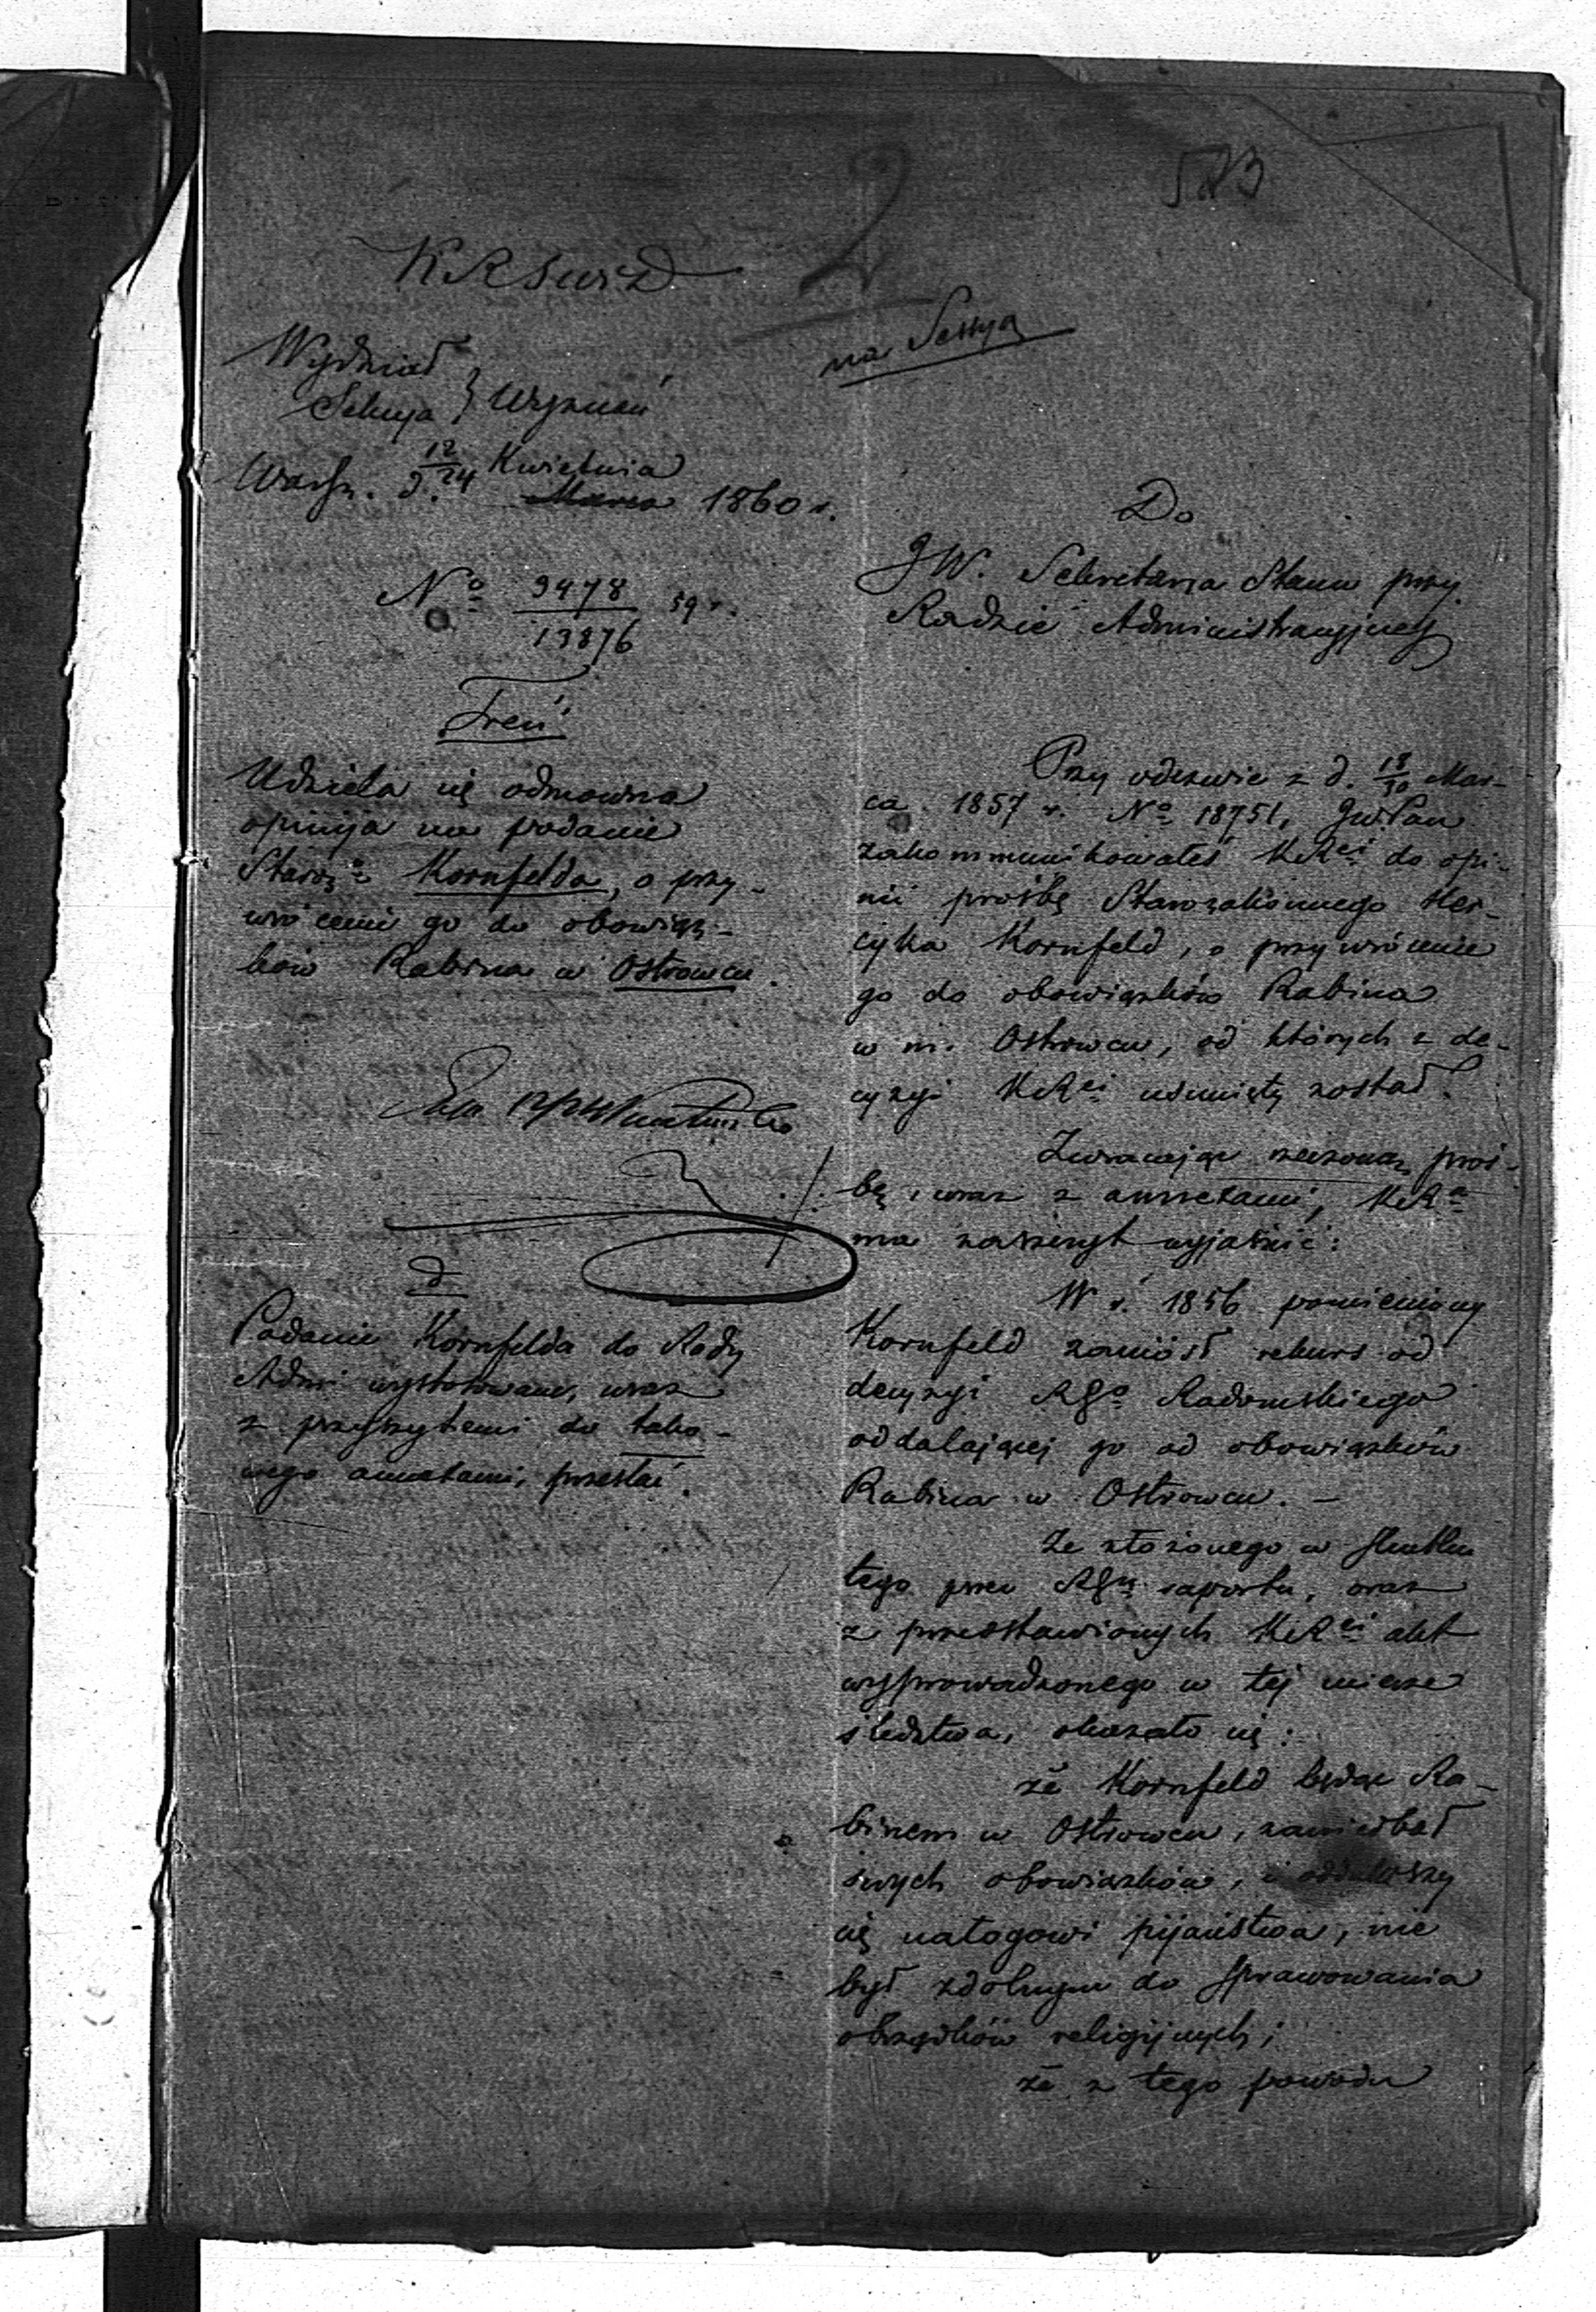 2
523
KRSWiD
na Sessyą
Wydział
Sekcya } Wyznań
Warsz. d. 12/24 Kwietnia
Marca 1860 r.
No 9478/13876 59 r.
Treść
Udziela się odmowna
opinija na podanie
Staroz.o Kornfelda, o przy-
wrócenie go do obowiąz-
ków Rabina w Ostrowcu.
d
Podanie Kornfelda do Rady
Admi wystosowane, wraz
z przyszytemi do tako-
wego annexami, przesłać.
Do
JW. Sekretarza Stanu przy
Radzie Administracyjnej
Przy odezwie z d. 18/30 Mar-
ca 1857 r. No 18751, JW Pan
zakommunikowałeś KRei do opi-
nii prośbę Starozakonnego Her-
cyka Kornfeld, o przywrócenie
go do obowiązków Rabina
w m. Ostrowcu, od których z de-
cyzyi KRei usunięty został.
Zwracając rzeczoną proś-
bę, wraz z annexami, KRa
ma zaszczyt wyjaśnić:
W r. 1856 pomieniony
Kornfeld zaniósł rekurs od
decyzyi RGo Radomskiego
oddalającej go od obowiązków
Rabina w Ostrowcu. —
Ze złożonego w skutku
tego przez RGn raportu, oraz
z przedstawionych KRei akt
wyprowadzonego w tej mierze
śledztwa, okazało się:
że Kornfeld będąc Ra-
binem w Ostrowcu, zaniedbał
swych obowiązków, i oddawszy
się nałogowi pijaństwa, nie
był zdolnym do sprawowania
obrządków religijnych;
że z tego powodu